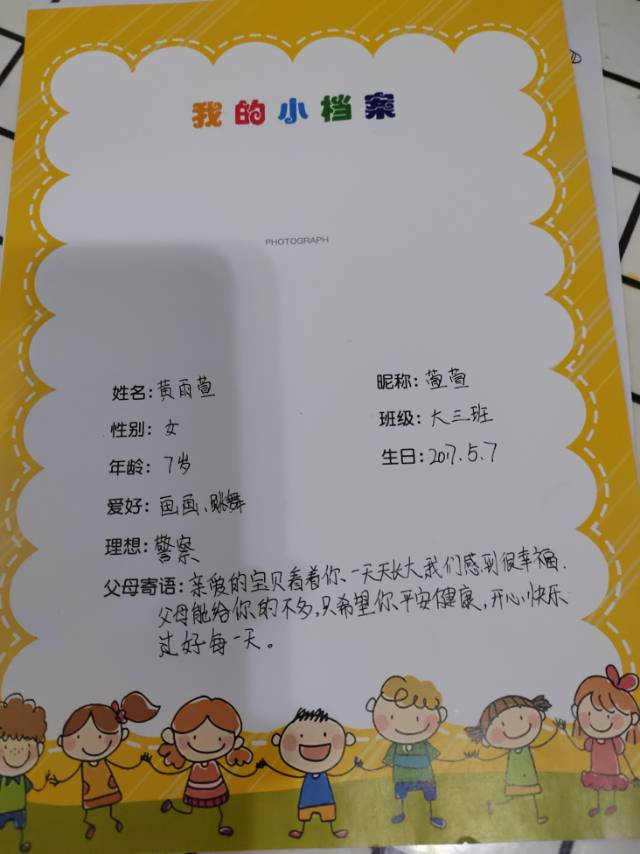 我的小档案
PHOTOGRAPH
姓名:黄雨萱 昵称:萱萱
性别:女 班级:大三班
年龄:7岁 生日:2017.5.7
爱好:画画、跳舞
理想:警察
父母寄语:亲爱的宝贝看着你、一天天长大我们感到很幸福.
父母能给你的不多,只希望你平安健康,开心快乐
过好每一天。